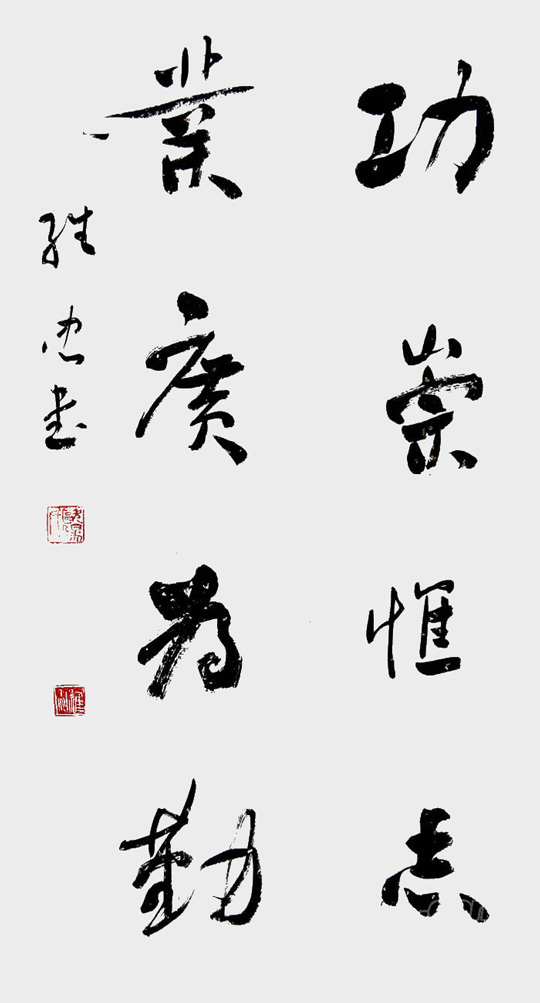 功崇惟志
業廣為勤
忠書